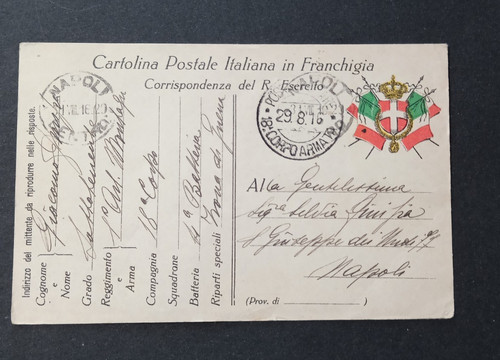 Cartolina Postale Italiana in Franchigia
Corrispondenza del R. Esercito
NAPOLI
29.8.16
18° CORPO ARMATA
NAPOLI
Indirizzo del mittente da riprodurre nelle risposte.
Cognome e Nome
Giacomo
Grado
Sottotenente
Reggimento e Arma
Compagnia
18° Corpo
Squadrone
Batteria
4a Batteria
Riparti speciali
Zona di Guerra
Alla Gentilissima
Sig.ra Silvia
S. Giuseppe dei Nudi 77
Napoli
(Prov. di )